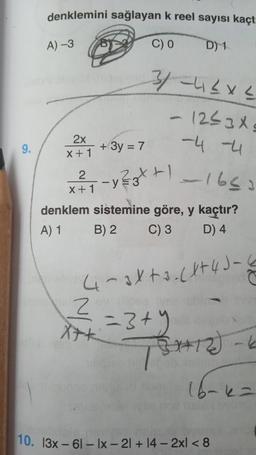 denklemini sağlayan k reel sayısı kaçt
A) -3 B) -2 C) 0 D) 1
3/ -4 ≤ x ≤
- 12 ≤ 3x ≤
-4 -4
9. 2x/(x+1) + 3y = 7
2/(x+1) - y = 3
x+1
-16 ≤
denklem sistemine göre, y kaçtır?
A) 1 B) 2 C) 3 D) 4
2/(x+1) = 3+y
16-k=
10. |3x – 6| – |x – 2| + |4 – 2x| < 8